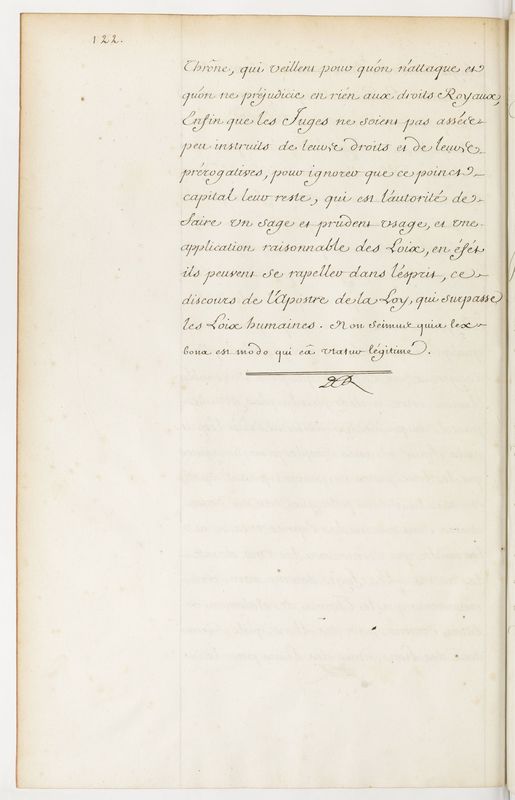 122.
Thrône, qui veillent pour qu'on n'attaque et
qu'on ne préjudicie en rien aux droits Royaux,
Enfin que les Juges ne soient pas assés
peu instruits de leurs droits et de leurs
prérogatives, pour ignorer que ce poinct
capital leur reste, qui est l'autorité de
faire un sage et prudent usage, et une
application raisonnable des Loix, en éfét
ils peuvent se rapeller dans l'ésprit, ce
discours de l'Apostre de la Loy, qui surpasse
les Loix humaines. Non scimus quia lex
bona est modo qui eâ utatur légitimé.